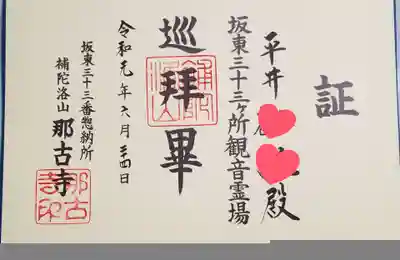 証
平井 殿
坂東三十三ヶ所観音霊場
巡拜畢
令和元年六月二十四日
坂東三十三番惣納所
補陀洛山 那古寺
那古寺印